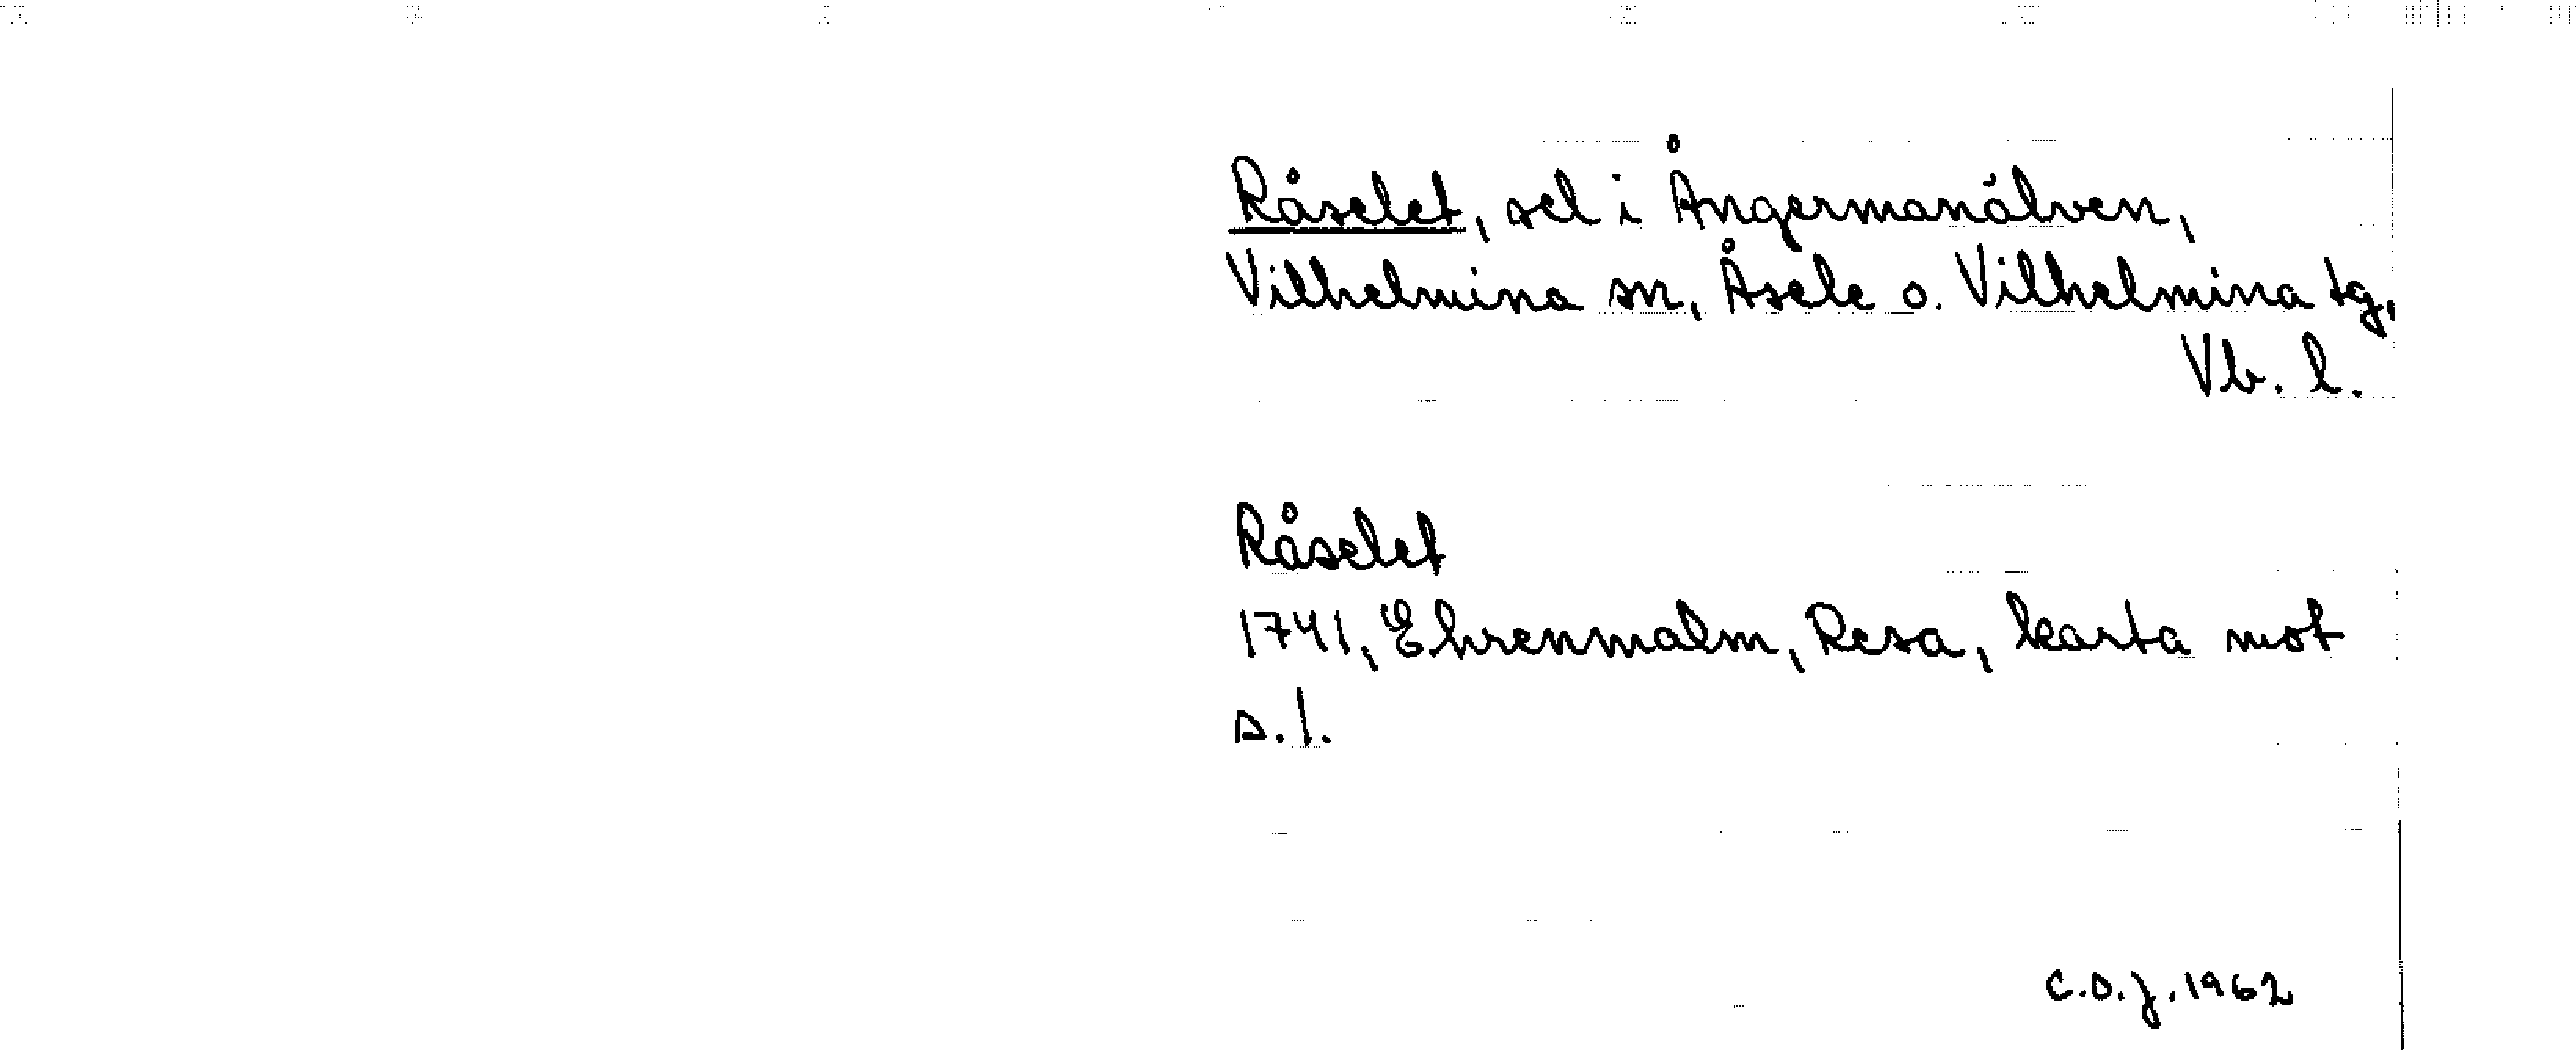 Råselet, sel i Ångermanälven,
Vilhelmina sn, Åsele o. Vilhelmina tg,
Vb. l.
Råselet
1741, Ehrenmalm, Resa, karta mot
s. 1.
C.O.J. 1962